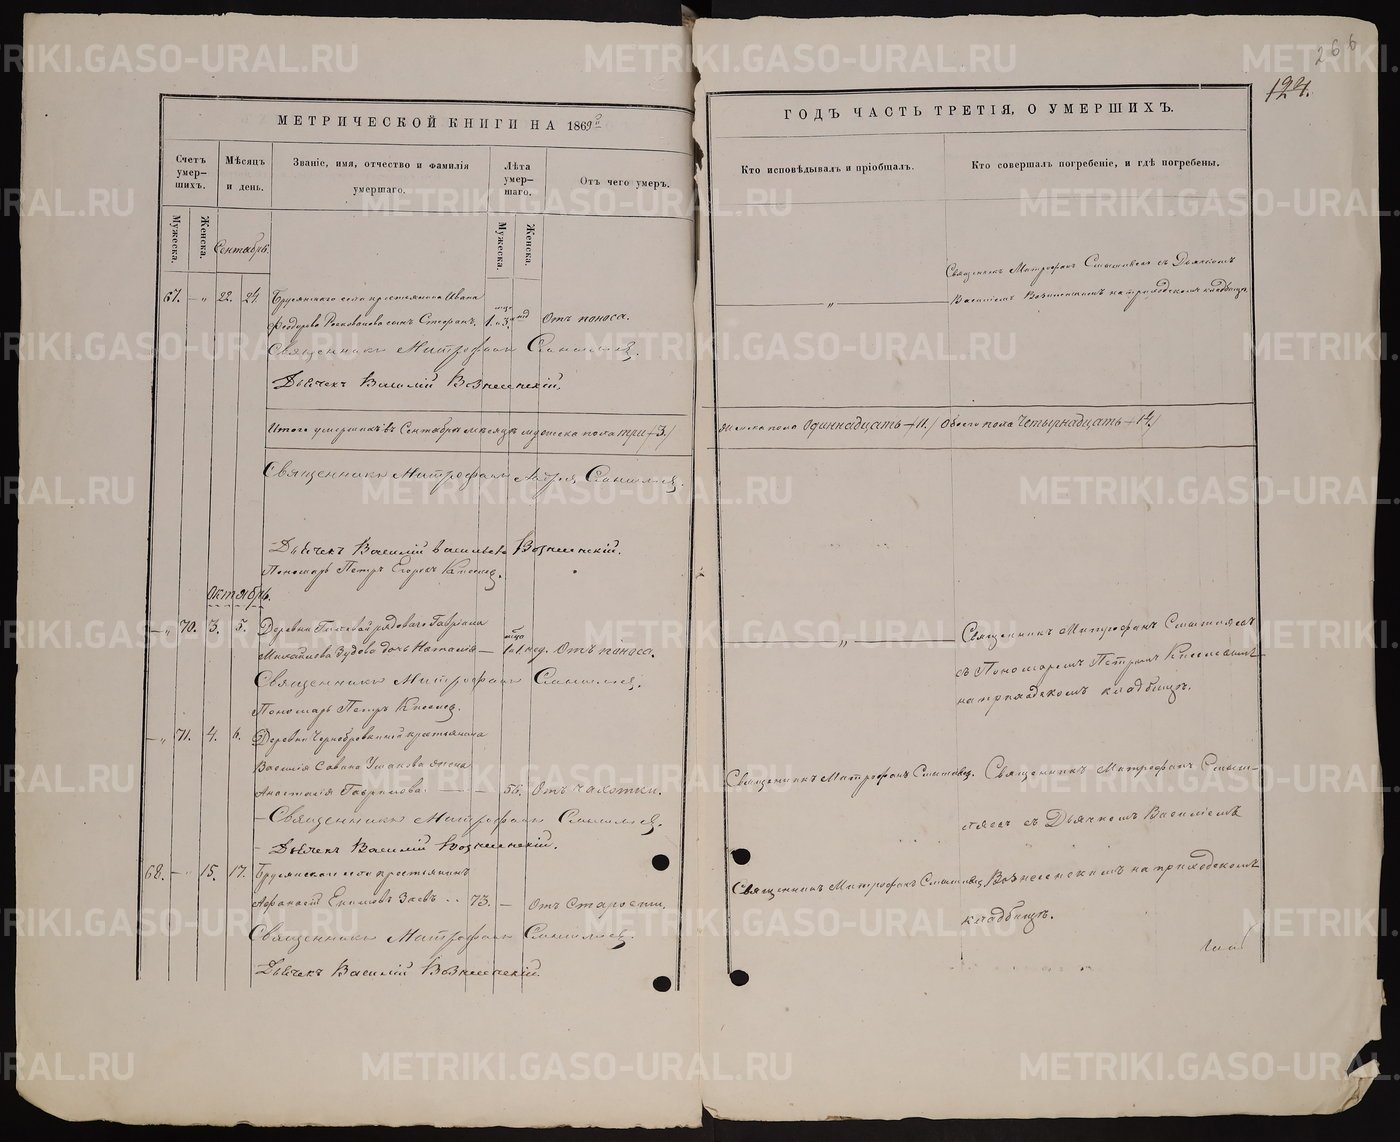 266
124.
МЕТРИЧЕСКОЙ КНИГИ НА 1869й
ГОДЪ ЧАСТЬ ТРЕТІЯ, О УМЕРШИХЪ.
Счетъ умер- шихъ.
Мѣсяцъ и день.
Званіе, имя, отчество и фамилія умершаго.
Лѣта умер- шаго.
Отъ чего умеръ.
Кто исповѣдывалъ и пріобщалъ.
Кто совершалъ погребеніе, и гдѣ погребены.
Мужеска.
Женска.
Мужеска.
Женска.
Сентябрь.
67. — „ 22. 24 Брусянскаго села крестьянина Ивана
Феодорова сынъ Стефанъ. 1. 3. нед Отъ поноса.
Священникъ Митрофанъ
Дьячекъ Василій Вознесенскій.
— „ —
Священникъ Митрофанъ съ Дьячкомъ
Василіемъ Вознесенскимъ на приходскомъ кладбищѣ
Итого умершихъ въ Сентябрѣ месяцѣ мужеска пола три /3./
женска пола Одиннадцать /11./ Обоего пола Четырнадцать /14./
Священникъ Митрофанъ
Дьячекъ Василій Васильевъ Вознесенскій.
Пономарь Петръ Егоровъ Киселев.
Октябрь.
— „ 70. 3. 5. Деревни рядоваго Гавріила
Михайлова дочь Наталія — 1 нед. Отъ поноса.
Священникъ Митрофанъ
Пономарь Петръ Киселев.
— „ —
Священникъ Митрофанъ
съ Пономаремъ Петромъ Киселевымъ
на приходскомъ кладбищѣ.
— „ 71. 4. 6. Деревни Чернобровкиной крестьянина
Василія Савина Ушакова жена
Анастасія Гаврилова. — 55. Отъ чахотки.
Священникъ Митрофанъ
Дьячекъ Василій Вознесенскій.
Священникъ Митрофанъ
Священникъ Митрофанъ
съ Дьячкомъ Василіемъ
68. — „ 15. 17. Брусянскаго села крестьянинъ
Афанасій Екимовъ Заевъ .. 73. — Отъ старости.
Священникъ Митрофанъ
Дьячекъ Василій Вознесенскій.
Священникъ Митрофанъ
Вознесенскимъ на приходскомъ
кладбищѣ.
METRIKI.GASO-URAL.RU